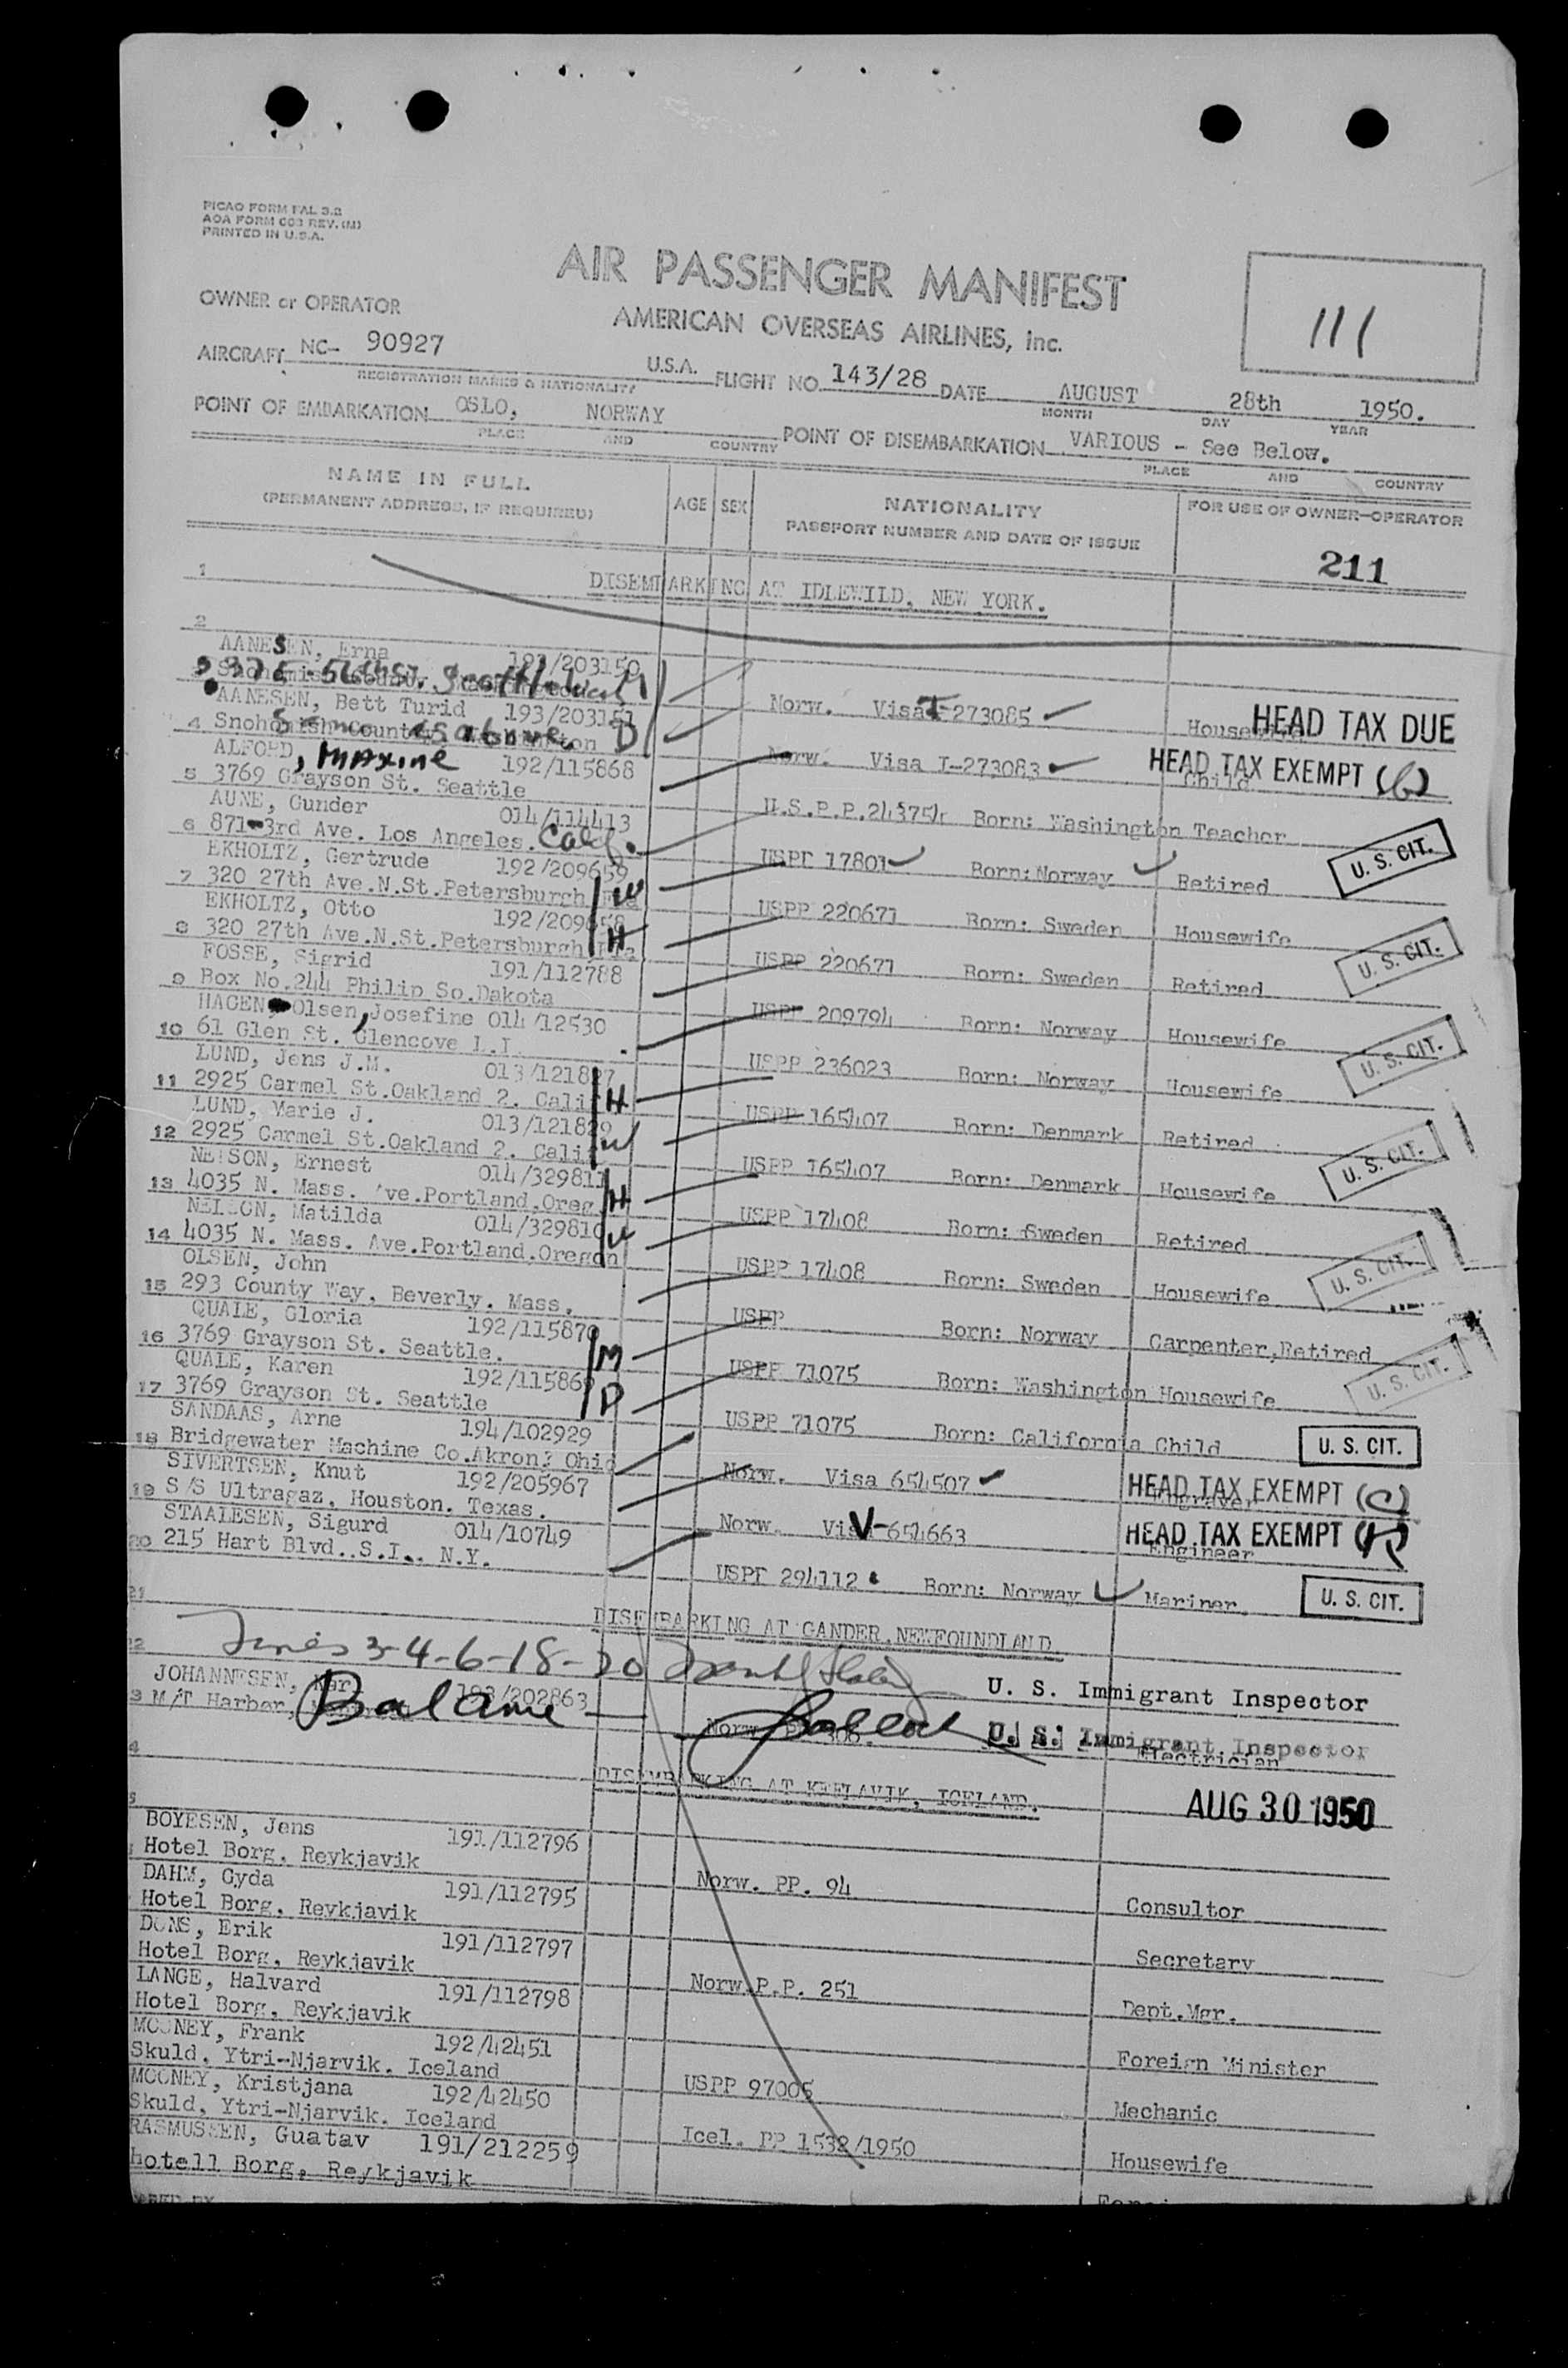 PICAO FORM FAL 3.2
AOA FORM 003 REV. (M)
PRINTED IN U.S.A.
AIR PASSENGER MANIFEST
AMERICAN OVERSEAS AIRLINES, Inc.
111
OWNER or OPERATOR
AIRCRAFT NC- 90927 U.S.A. FLIGHT NO. 143/28 DATE AUGUST 28th 1950.
REGISTRATION MARKS & NATIONALITY MONTH DAY YEAR
POINT OF EMBARKATION OSLO, NORWAY POINT OF DISEMBARKATION VARIOUS - See Below.
PLACE AND COUNTRY PLACE AND COUNTRY
NAME IN FULL AGE SEX NATIONALITY FOR USE OF OWNER-OPERATOR
(PERMANENT ADDRESS, IF REQUIRED) PASSPORT NUMBER AND DATE OF ISSUE
211
1 DISEMBARKING AT IDLEWILD, NEW YORK.
2
AANESEN, Erna 193/203150
3 M Norw. Visa I-273085 Housewife HEAD TAX DUE
AANESEN, Bett Turid 193/203151
4 Snohomish County same as above D Norw. Visa I-273083 Child HEAD TAX EXEMPT (b)
ALFORD, MAXINE 192/115868
5 3769 Grayson St. Seattle U.S.P.P.24375 Born: Washington Teacher
AUNE, Gunder 014/114413
6 871-3rd Ave. Los Angeles. Calif. USPP 17801 Born: Norway Retired U. S. CIT.
EKHOLTZ, Gertrude 192/209659
7 320 27th Ave.N.St.Petersburgh Fla W USPP 220671 Born: Sweden Housewife
EKHOLTZ, Otto 192/209658
8 320 27th Ave.N.St.Petersburgh Fla H USPP 220671 Born: Sweden Retired U. S. CIT.
FOSSE, Sigrid 191/112788
9 Box No.244 Philip So.Dakota USPP 209794 Born: Norway Housewife
HAGEN, Olsen, Josefine 014/12530
10 61 Glen St. Glencove L.I. USPP 236023 Born: Norway Housewife U. S. CIT.
LUND, Jens J.M. 013/121827
11 2925 Carmel St.Oakland 2. Calif H USPP 165407 Born: Denmark Retired
LUND, Marie J. 013/121829
12 2925 Carmel St.Oakland 2. Calif W USPP 165407 Born: Denmark Housewife U. S. CIT.
NELSON, Ernest 014/329811
13 4035 N. Mass. Ave.Portland.Oreg H USPP 17408 Born: Sweden Retired
NELSON, Matilda 014/329810
14 4035 N. Mass. Ave.Portland.Oregon W USPP 17408 Born: Sweden Housewife U. S. CIT.
OLSEN, John
15 293 County Way, Beverly. Mass. USPP Born: Norway Carpenter,Retired
QUALE, Gloria 192/115870
16 3769 Grayson St. Seattle. M USPP 71075 Born: Washington Housewife U. S. CIT.
QUALE, Karen 192/115869
17 3769 Grayson St. Seattle D USPP 71075 Born: California Child U. S. CIT.
SANDAAS, Arne 194/102929
18 Bridgewater Machine Co.Akron, Ohio Norw. Visa 654507 Engraver HEAD TAX EXEMPT (C)
SIVERTSEN, Knut 192/205967
19 S/S Ultragaz, Houston. Texas. Norw. Visa V-654663 Engineer HEAD TAX EXEMPT
STAALESEN, Sigurd 014/10749
20 215 Hart Blvd..S.I.. N.Y. USPP 294112 Born: Norway Mariner. U. S. CIT.
21 DISEMBARKING AT GANDER.NEWFOUNDLAND
22 Lines 3-4-6-18-20 U. S. Immigrant Inspector
JOHANNESEN, 193/202863
3 M/T Harbor, Balance Norw. U. S. Immigrant Inspector
Electrician
4 DISEMBARKING AT KEFLAVIK, ICELAND. AUG 30 1950
BOYESEN, Jens 191/112796
Hotel Borg. Reykjavik Norw. PP. 94 Consultor
DAHM, Gyda 191/112795
Hotel Borg. Reykjavik Secretary
DONS, Erik 191/112797
Hotel Borg, Reykjavik Norw.P.P. 251 Dept.Mgr.
LANGE, Halvard 191/112798
Hotel Borg. Reykjavik Foreign Minister
MOONEY, Frank 192/42451
Skuld. Ytri-Njarvik. Iceland USPP 97005 Mechanic
MOONEY, Kristjana 192/42450
Skuld, Ytri-Njarvik. Iceland Icel. PP 1532/1950 Housewife
RASMUSSEN, Guatav 191/212259
hotell Borg, Reykjavik